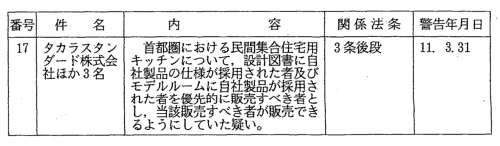 番号 件名 内容 関係法条 警告年月日
17 タカラスタンダード株式会社ほか3名 首都圏における民間集合住宅用キッチンについて，設計図書に自社製品の仕様が採用された者及びモデルルームに自社製品が採用された者を優先的に販売すべき者とし，当該販売すべき者が販売できるようにしていた疑い。 3条後段 11. 3.31